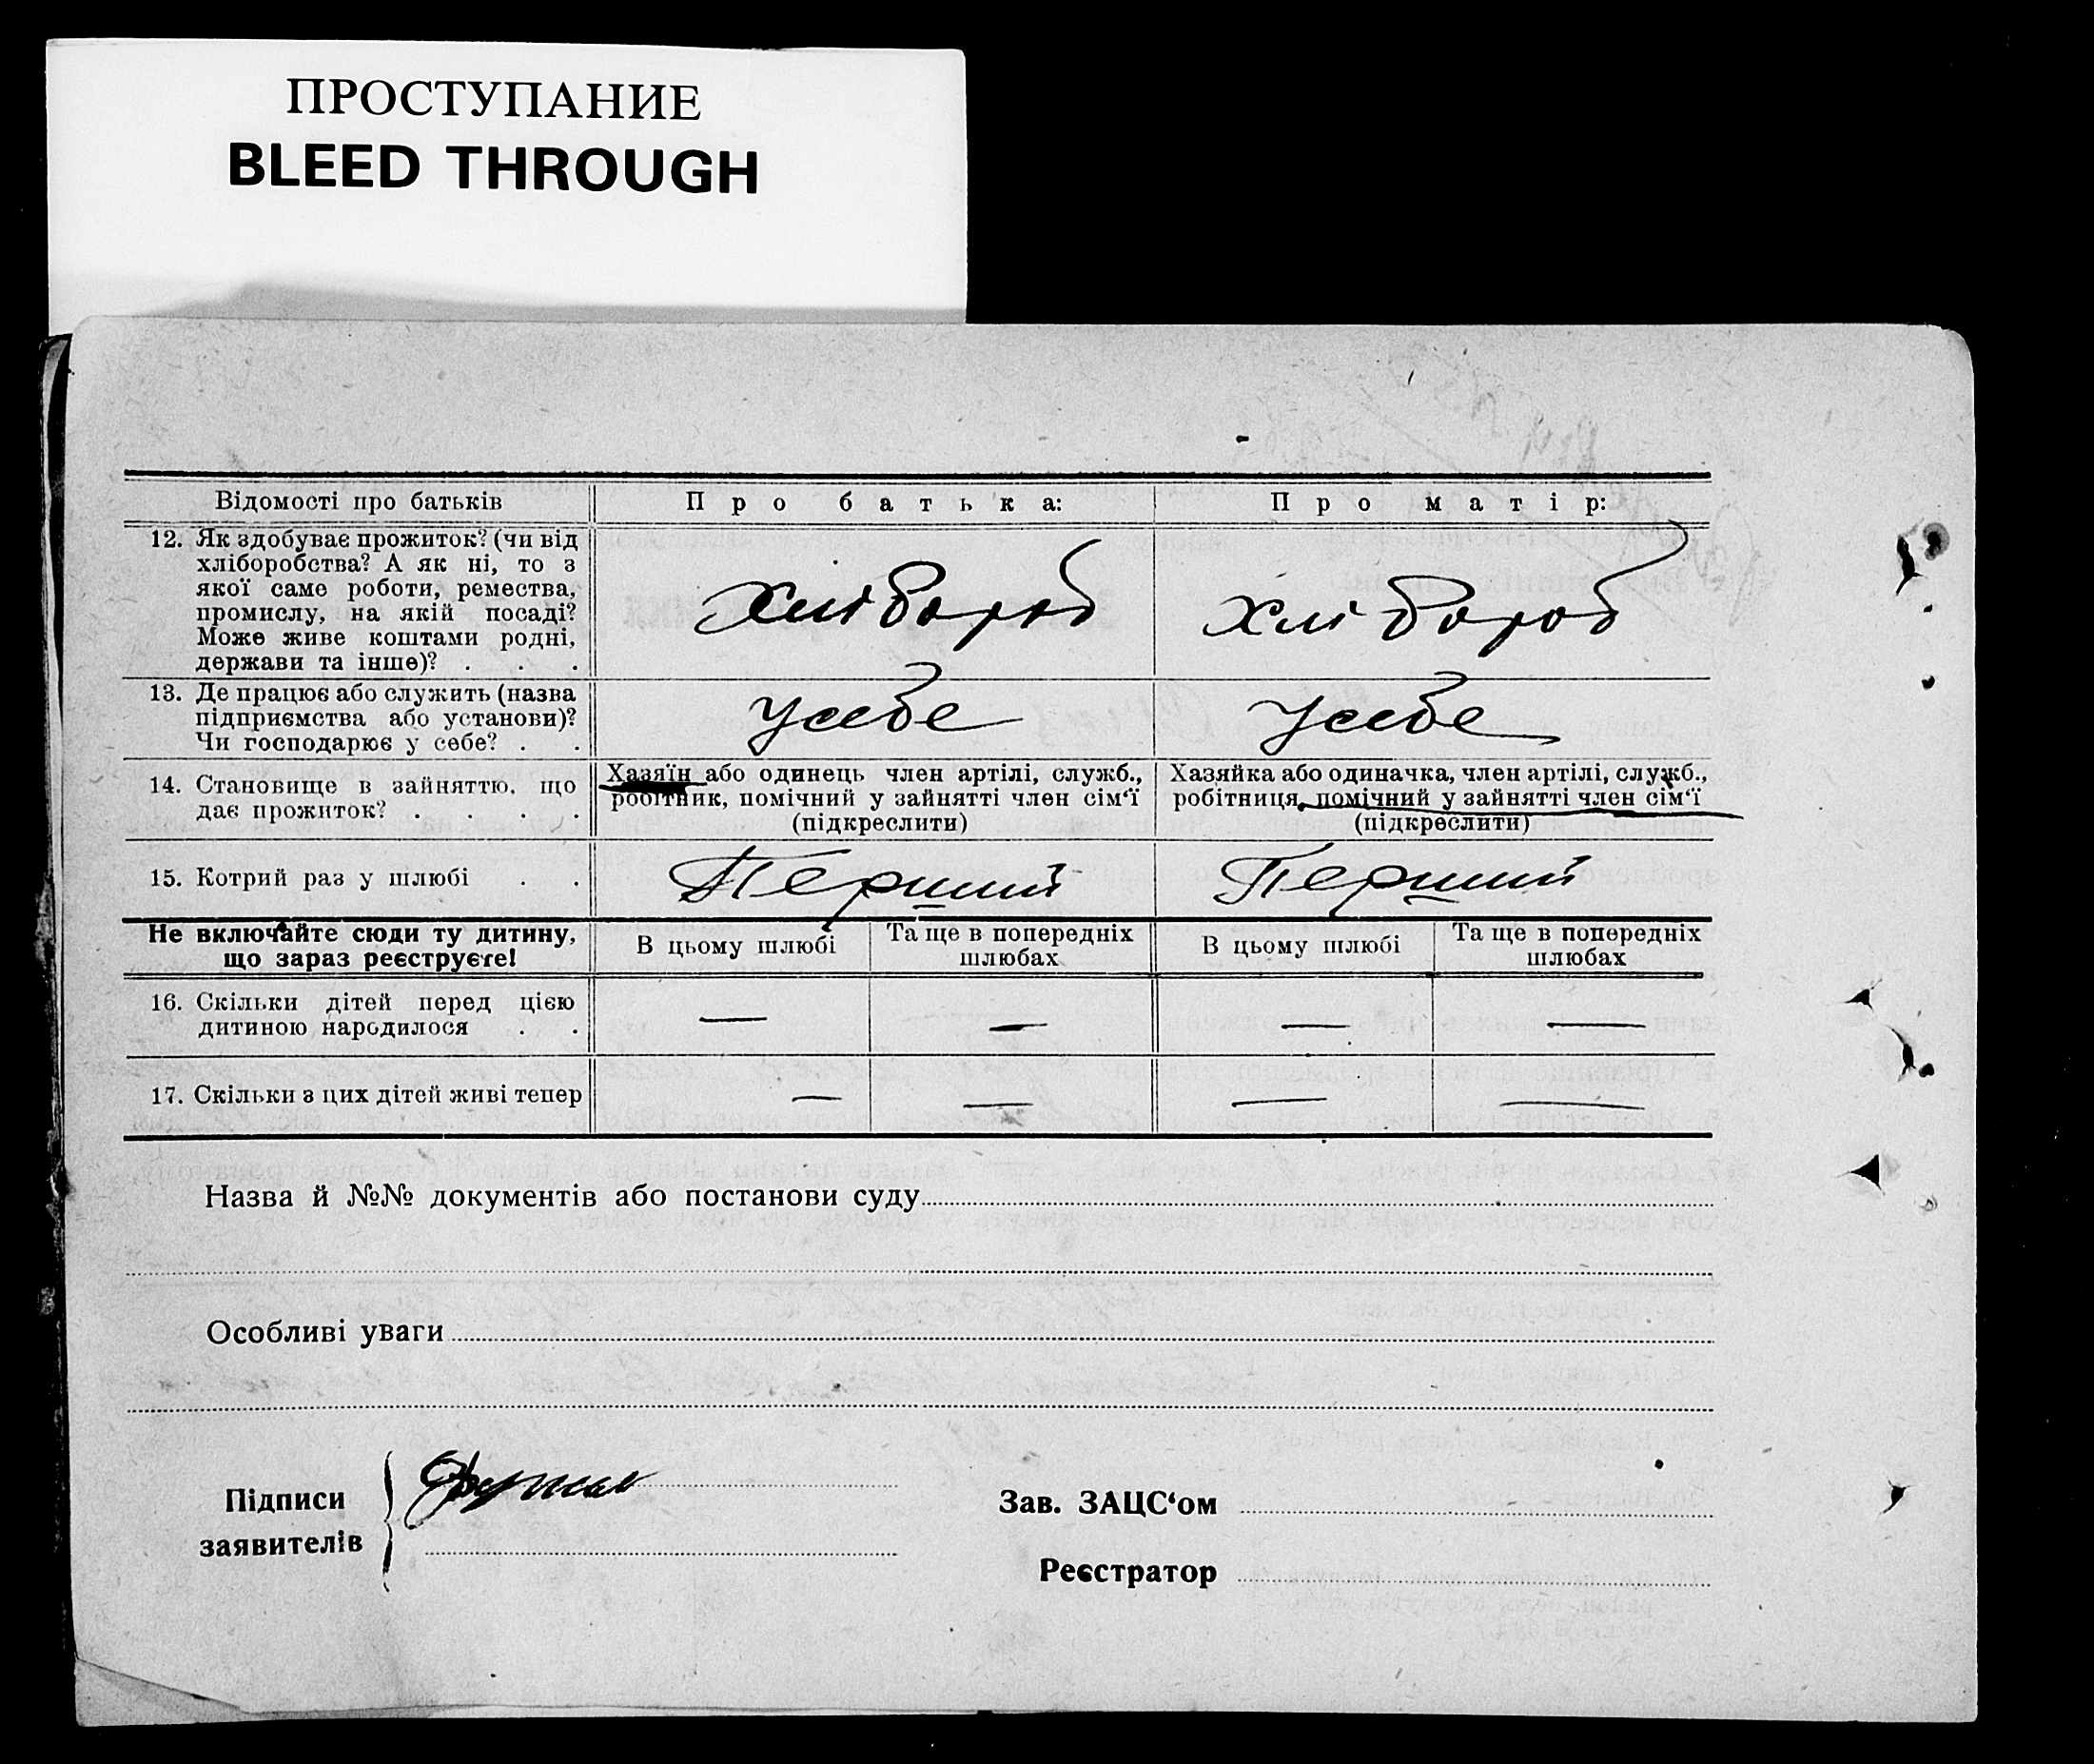 ПРОСТУПАНИЕ
BLEED THROUGH
Відомості про батьків
Про батька:
Про матір:
12. Як здобуває прожиток? (чи від
хліборобства? А як ні, то з
якої саме роботи, ремества,
промислу, на якій посаді?
Може живе коштами родні,
держави та інше)? . . .
Хлібороб
Хлібороб
13. Де працює або служить (назва
підприємства або установи)?
Чи господарює у себе? . .
У себе
У себе
14. Становище в зайняттю, що
дає прожиток? . . . .
Хазяїн або одинець член артілі, служб.,
робітник, помічний у зайнятті член сім‘ї
(підкреслити)
Хазяйка або одиначка, член артілі, служб.,
робітниця, помічний у зайнятті член сім‘ї
(підкреслити)
15. Котрий раз у шлюбі . .
Перший
Перший
Не включайте сюди ту дитину,
що зараз реєструєте!
В цьому шлюбі
Та ще в попередніх
шлюбах
В цьому шлюбі
Та ще в попередніх
шлюбах
16. Скільки дітей перед цією
дитиною народилося . .
—
—
—
—
17. Скільки з цих дітей живі тепер
—
—
—
—
Назва й №№ документів або постанови суду
Особливі уваги
Підписи
заявителів
Зав. ЗАЦС‘ом
Реєстратор